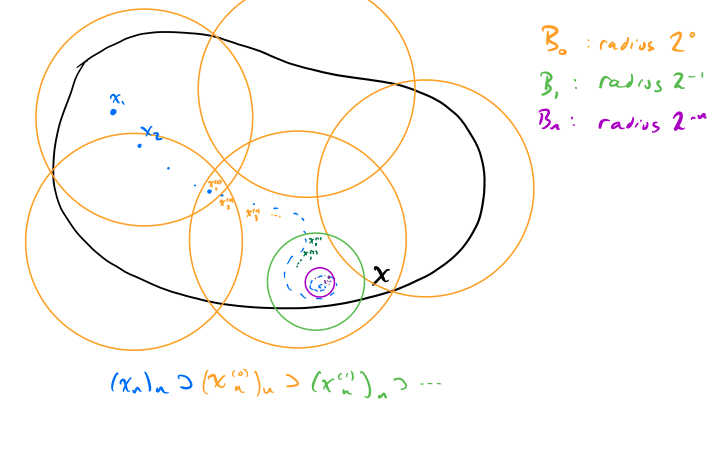 B₀ : radius 2⁰
B₁ : radius 2⁻¹
Bₙ : radius 2⁻ⁿ
x₁
x₂
x₁⁽⁰⁾
x₂⁽⁰⁾
x₃⁽⁰⁾
X
(xₙ)ₙ ⊃ (xₙ⁽⁰⁾)ₙ ⊃ (xₙ⁽¹⁾)ₙ ⊃ ...